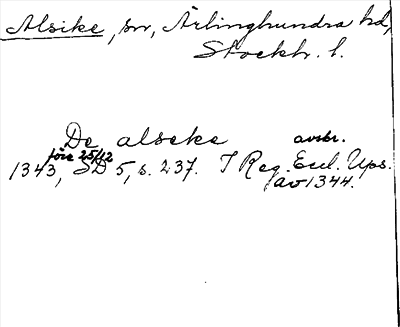 Alsike, sn, Ärlinghundra hd,
Stockh. l.
De alseke avskr.
före 25/12
1343, SD 5, s. 237. I Reg. Eccl. Ups.
av 1344.